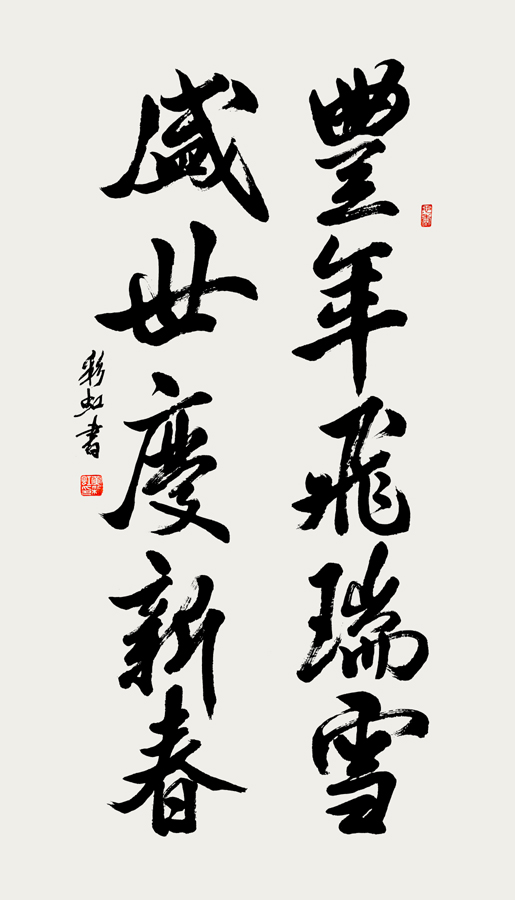 豐年飛瑞雪
盛世慶新春
彩虹書